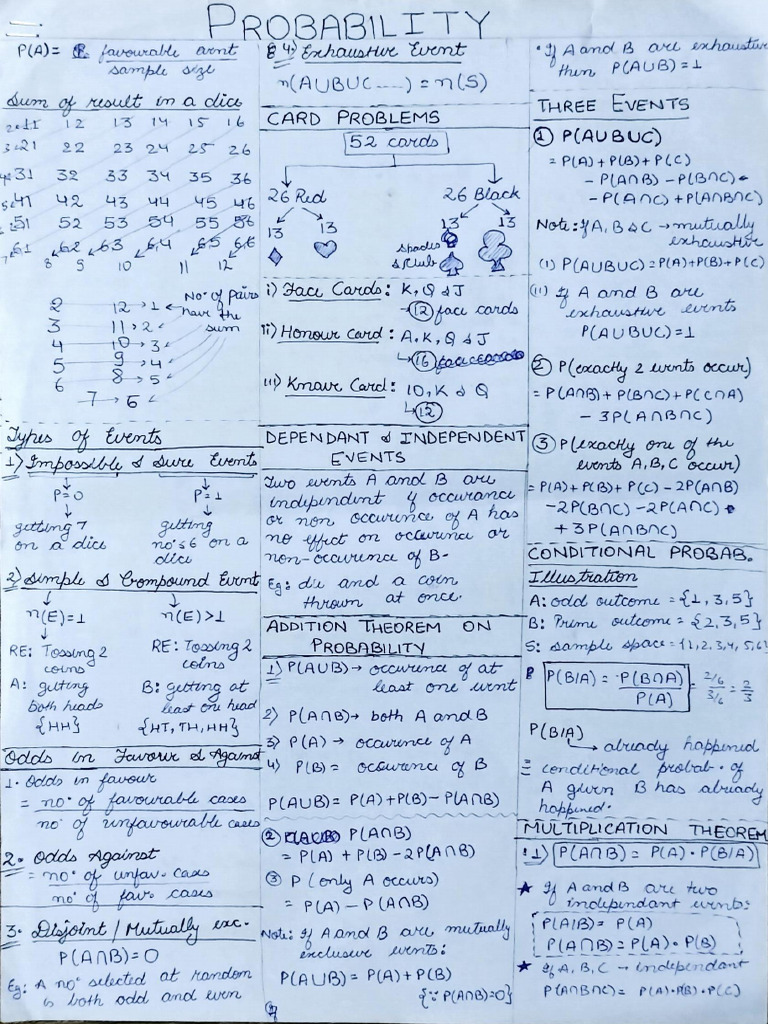 PROBABILITY
P(A) = favourable amt
sample size
Sum of result in a dice
2←11 12 13 14 15 16
3←21 22 23 24 25 26
4←31 32 33 34 35 36
5←41 42 43 44 45 46
51 52 53 54 55 56
61 62 63 64 65 66
7 8 9 10 11 12
2 12 → 1 ← No. of pairs
3 11 → 2 have the
4 10 → 3 sum
5 9 → 4
6 8 → 5
7 → 6
Types of Events
1) Impossible & Sure Events
P=0 P=1
getting 7 getting
on a dice no. ≤6 on a
dice
2) Simple & Compound Event
n(E)=1 n(E)>1
RE: Tossing 2 RE: Tossing 2
coins coins
A: getting B: getting at
both heads least one head
{HH} {HT, TH, HH}
Odds in Favour & Against
1. Odds in favour
= no. of favourable cases
no. of unfavourable cases
2. Odds Against
= no. of unfav. cases
no. of fav. cases
3. Disjoint / Mutually exc.
P(A∩B)=0
Eg: A no. selected at random
is both odd and even
4) Exhaustive Event
n(AUBUC.....) = n(S)
CARD PROBLEMS
52 cards
26 Red 26 Black
13 13 13 13
Spades
& Club
i) Face Cards: K, Q & J
→ 12 face cards
ii) Honour Card: A, K, Q & J
→ 16
iii) Knave Card: 10, K & Q
→ 12
DEPENDANT & INDEPENDENT
EVENTS
Two events A and B are
independent if occurance
or non occurence of A has
no effect on occurence or
non-occurence of B.
Eg: die and a coin
thrown at once.
ADDITION THEOREM ON
PROBABILITY
1) P(AUB) → occurence of at
least one event
2) P(A∩B) → both A and B
3) P(A) → occurence of A
4) P(B) = occurence of B
P(AUB) = P(A)+P(B)-P(A∩B)
② P(A∩B)
= P(A) + P(B) - 2P(A∩B)
③ P (only A occurs)
= P(A) - P(A∩B)
Note: If A and B are mutually
exclusive events:
P(AUB) = P(A)+P(B)
{∵ P(A∩B)=0}
• If A and B are exhaustive
then P(AUB)=1
THREE EVENTS
① P(AUBUC)
= P(A)+P(B)+P(C)
- P(A∩B) - P(B∩C)
- P(A∩C) + P(A∩B∩C)
Note: If A, B & C → mutually
exhaustive
(i) P(AUBUC)=P(A)+P(B)+P(C)
(ii) If A and B are
exhaustive events
P(AUBUC)=1
② P(exactly 2 events occur)
= P(A∩B)+P(B∩C)+P(C∩A)
- 3P(A∩B∩C)
③ P(exactly one of the
events A,B,C occur)
= P(A)+P(B)+P(C)-2P(A∩B)
-2P(B∩C)-2P(A∩C)
+3P(A∩B∩C)
CONDITIONAL PROBAB.
Illustration
A: odd outcome = {1,3,5}
B: Prime outcome = {2,3,5}
S: sample space = {1,2,3,4,5,6}
P(B/A) = P(B∩A) = 2/6 = 2
P(A) 3/6 3
P(B/A)
→ already happened
= conditional probab. of
A given B has already
happened.
MULTIPLICATION THEOREM
1) P(A∩B) = P(A)·P(B/A)
★ If A and B are two
independant events:
P(A/B) = P(A)
P(A∩B) = P(A)·P(B)
★ If A,B,C → independant
P(A∩B∩C) = P(A)·P(B)·P(C)